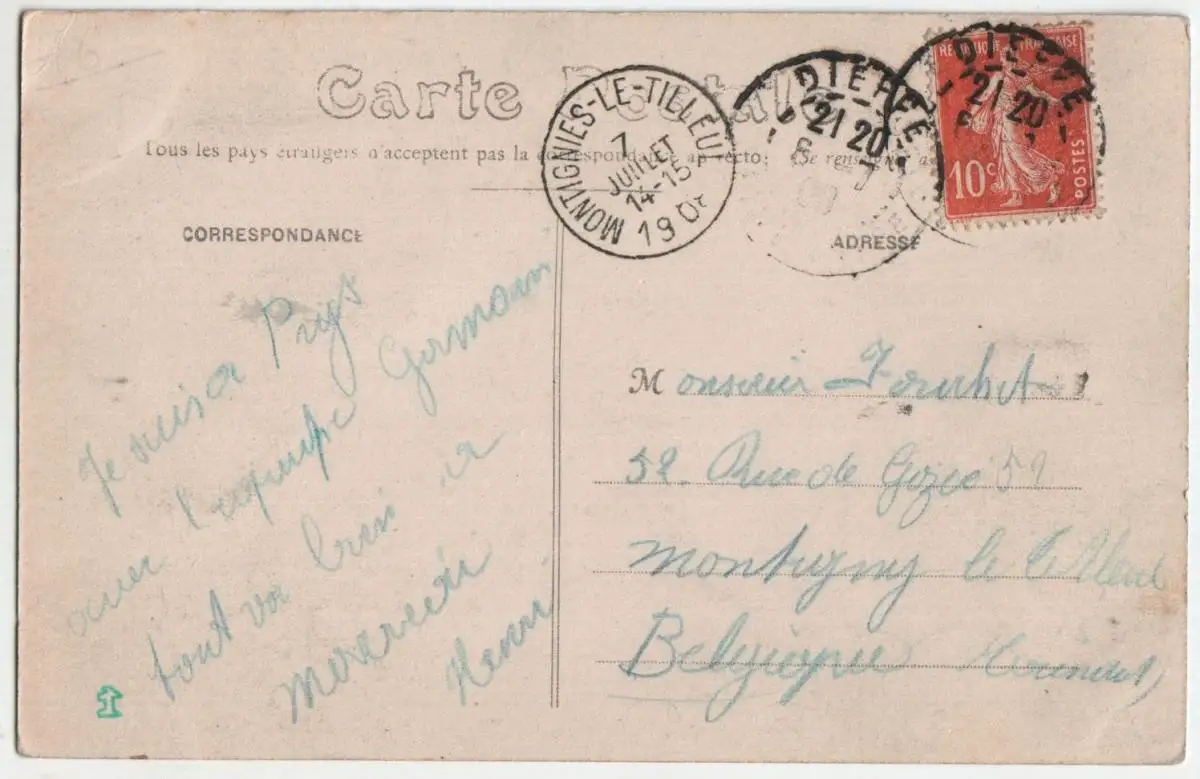 Carte Postale
Tous les pays étrangers n'acceptent pas la correspondance au recto; (Se renseigner
MONTIGNIES-LE-TILLEUL
7
JUILLET
14-15
190
DIEPPE
21 20
6
7
DIEPPE
21 20
6
RÉPUBLIQUE FRANÇAISE
10c
POSTES
CORRESPONDANCE
ADRESSE
Je suis a Puys
avec l'équipe Germain
tout va bien a
mercredi
Henri
Monsieur
52. Rue de Gozée 52
Montigny le Tilleul
Belgique (Hainaut)
1